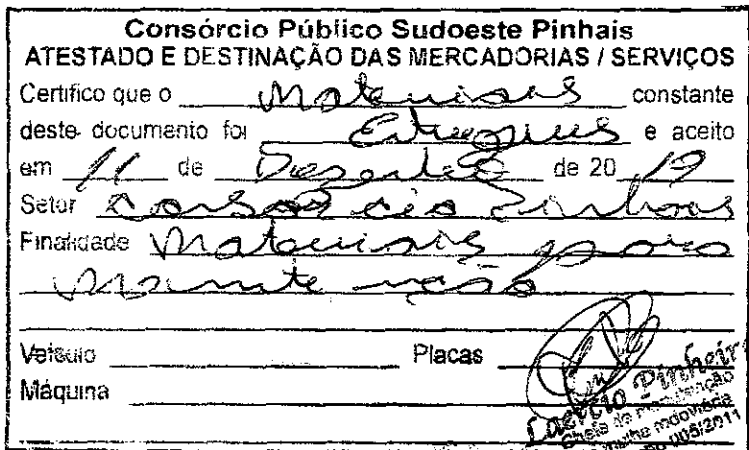 Consórcio Público Sudoeste Pinhais
ATESTADO E DESTINAÇÃO DAS MERCADORIAS / SERVIÇOS
Certifico que o Materiais constante
deste documento foi Entregues e aceito
em 11 de Dezembro de 2019
Setor Consórcio Pinhais
Finalidade Materiais para
Manutenção
Veículo Placas
Máquina
Laercio Pinheiro
Chefe de manutenção
rodoviária
005/2011